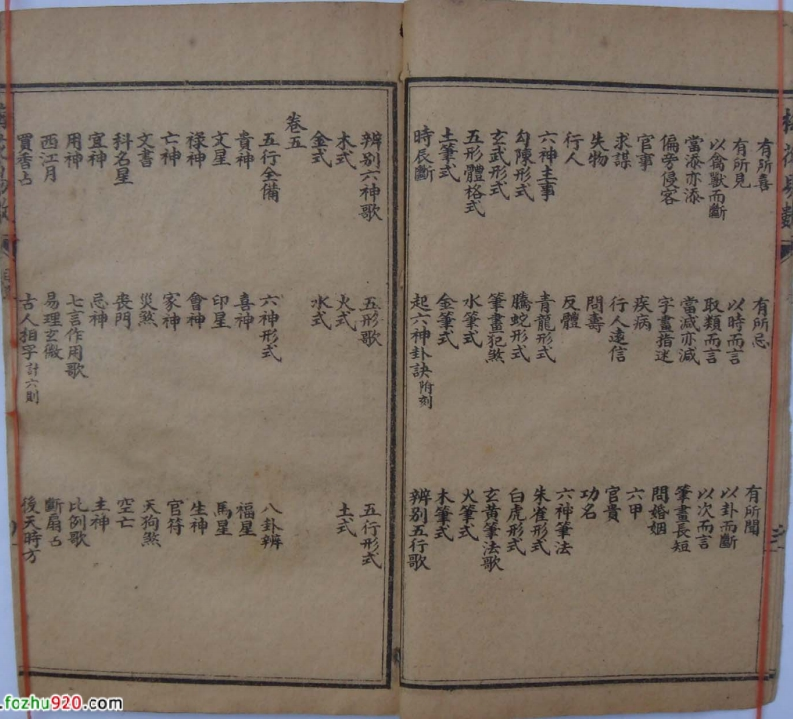 有所喜 有所忌 有所聞
有所見 以時而言 以卦而斷
以禽獸而斷 取類而言 以次而言
當添亦添 當減亦減 筆畫長短
偏旁侵客 字畫指迷 問婚姻
官事 疾病 六甲
求謀 行人遠信 官貴
失物 問壽 功名
行人 反體 六神筆法
六神主事 青龍形式 朱雀形式
勾陳形式 騰蛇形式 白虎形式
玄武形式 筆畫犯煞 玄黄筆法歌
五形體格式 水筆式 火筆式
土筆式 金筆式 木筆式
時辰斷 起六神卦訣附刻 辨别五行歌
辨别六神歌 五形歌 五行形式
木式 火式 土式
金式 水式
卷五
五行全備 六神形式 八卦辨
貴神 喜神 福星
文星 印星 馬星
祿神 會神 生神
亡神 家神 官符
文書 災煞 天狗煞
科名星 喪門 空亡
宜神 忌神 主神
用神 七言作用歌 比例歌
西江月 易理玄微 斷扇占
買香占 古人相字計六則 後天時方
.fozhu920.com